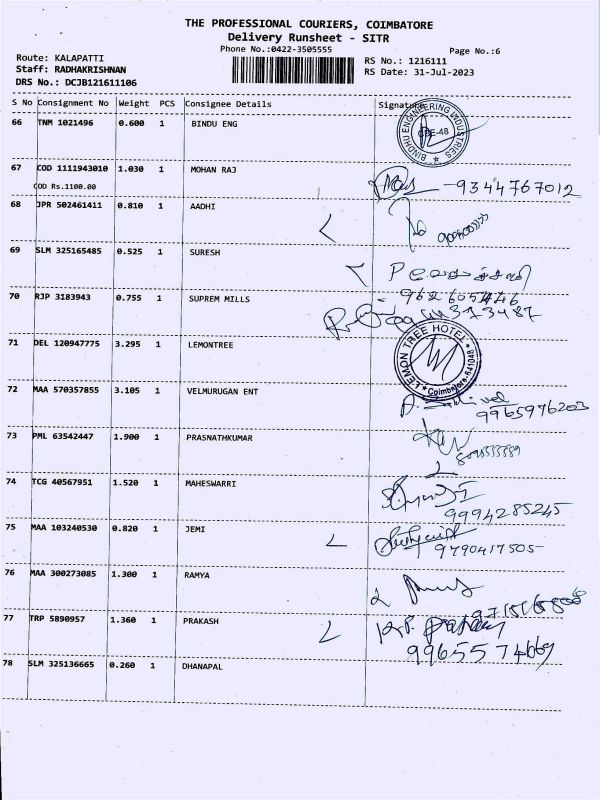 THE PROFESSIONAL COURIERS, COIMBATORE
Delivery Runsheet - SITR
Phone No.:0422-3505555
Page No.:6
Route: KALAPATTI
Staff: RADHAKRISHNAN
DRS No.: DCJB121611106
RS No.: 1216111
RS Date: 31-Jul-2023
S No Consignment No Weight PCS Consignee Details Signature
66 TNM 1021496 0.600 1 BINDU ENG
BINDHU ENGINEERING INDUSTRIES
CBE-48
67 COD 1111943010 1.030 1 MOHAN RAJ
COD Rs.1100.00
-9344767012
68 JPR 502461411 0.810 1 AADHI
69 SLM 325165485 0.525 1 SURESH
9626605446
70 RJP 3183943 0.755 1 SUPREM MILLS
71 DEL 120947775 3.295 1 LEMONTREE
LEMON TREE HOTEL
Coimbatore-641048
72 MAA 570357855 3.105 1 VELMURUGAN ENT
9965976203
73 PML 63542447 1.900 1 PRASNATHKUMAR
74 TCG 40567951 1.520 1 MAHESWARRI
9994285245
75 MAA 103240530 0.820 1 JEMI
9790417505
76 MAA 300273085 1.300 1 RAMYA
77 TRP 5890957 1.360 1 PRAKASH
9965574669
78 SLM 325136665 0.260 1 DHANAPAL